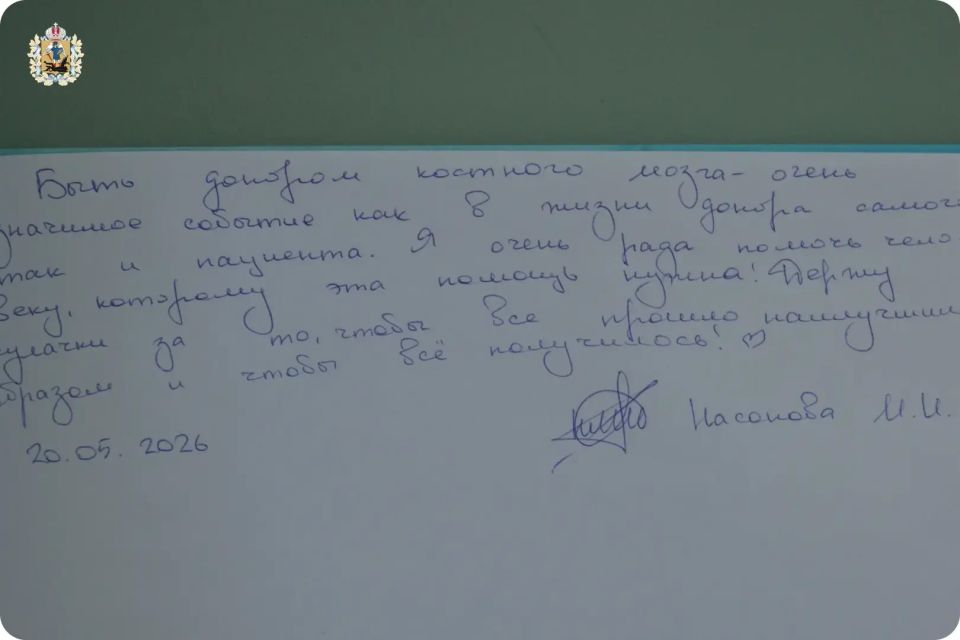 Быть донором костного мозга - очень
значимое событие как в жизни донора самого
так и пациента. Я очень рада помочь чело-
веку, которому эта помощь нужна! Держу
кулачки за то, чтобы все прошло наилучшим
образом и чтобы всё получилось! ♡
Насонова И.И.
20.05.2026